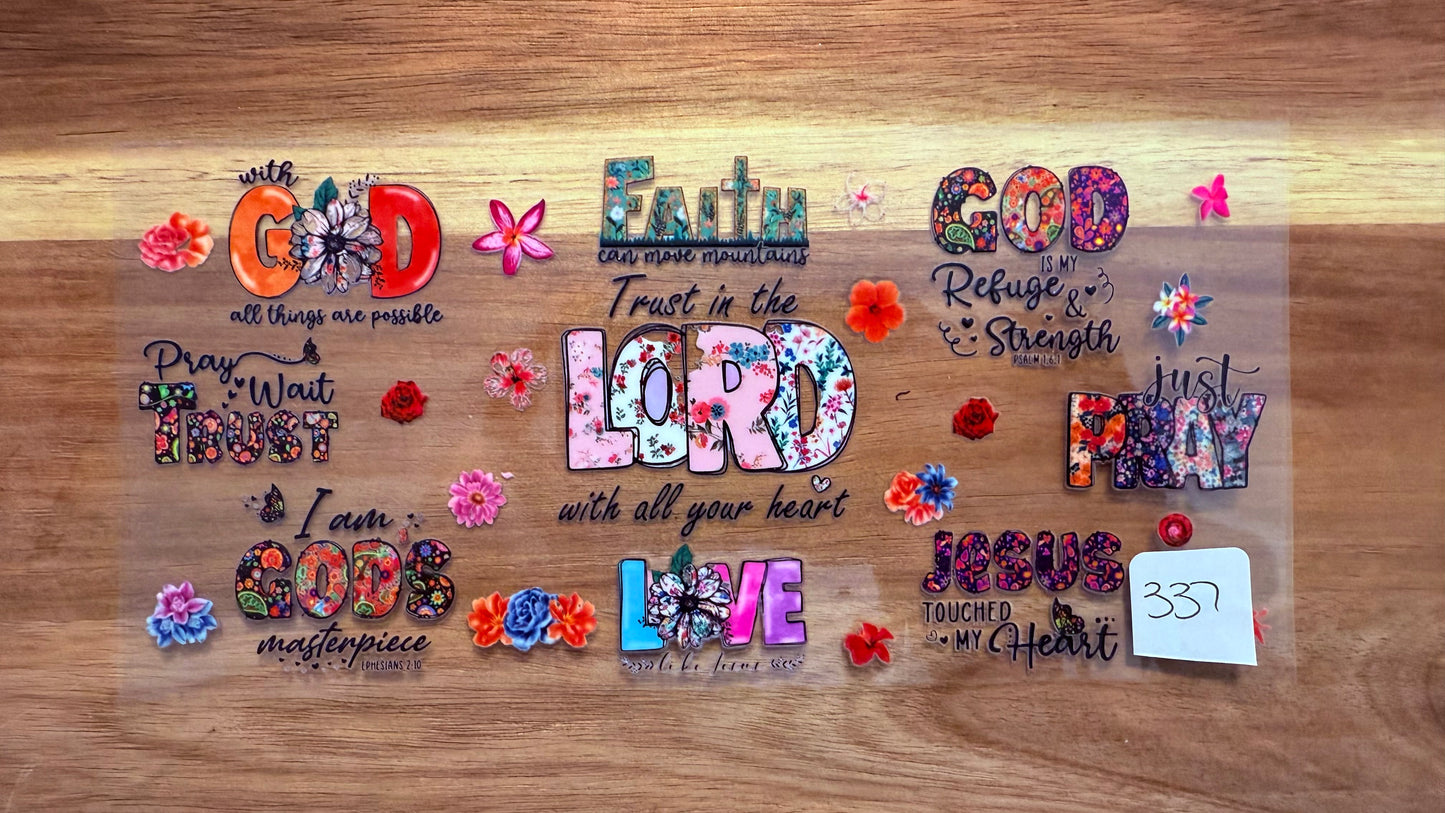 with
GOD
all things are possible
FAITH
can move mountains
GOD
IS MY
Refuge
&
Strength
PSALM 1:6:1
Trust in the
LORD
with all your heart
Pray
Wait
TRUST
just
PRAY
I am
GOD'S
masterpiece
EPHESIANS 2:10
LOVE
like Jesus
JESUS
TOUCHED
MY Heart
337